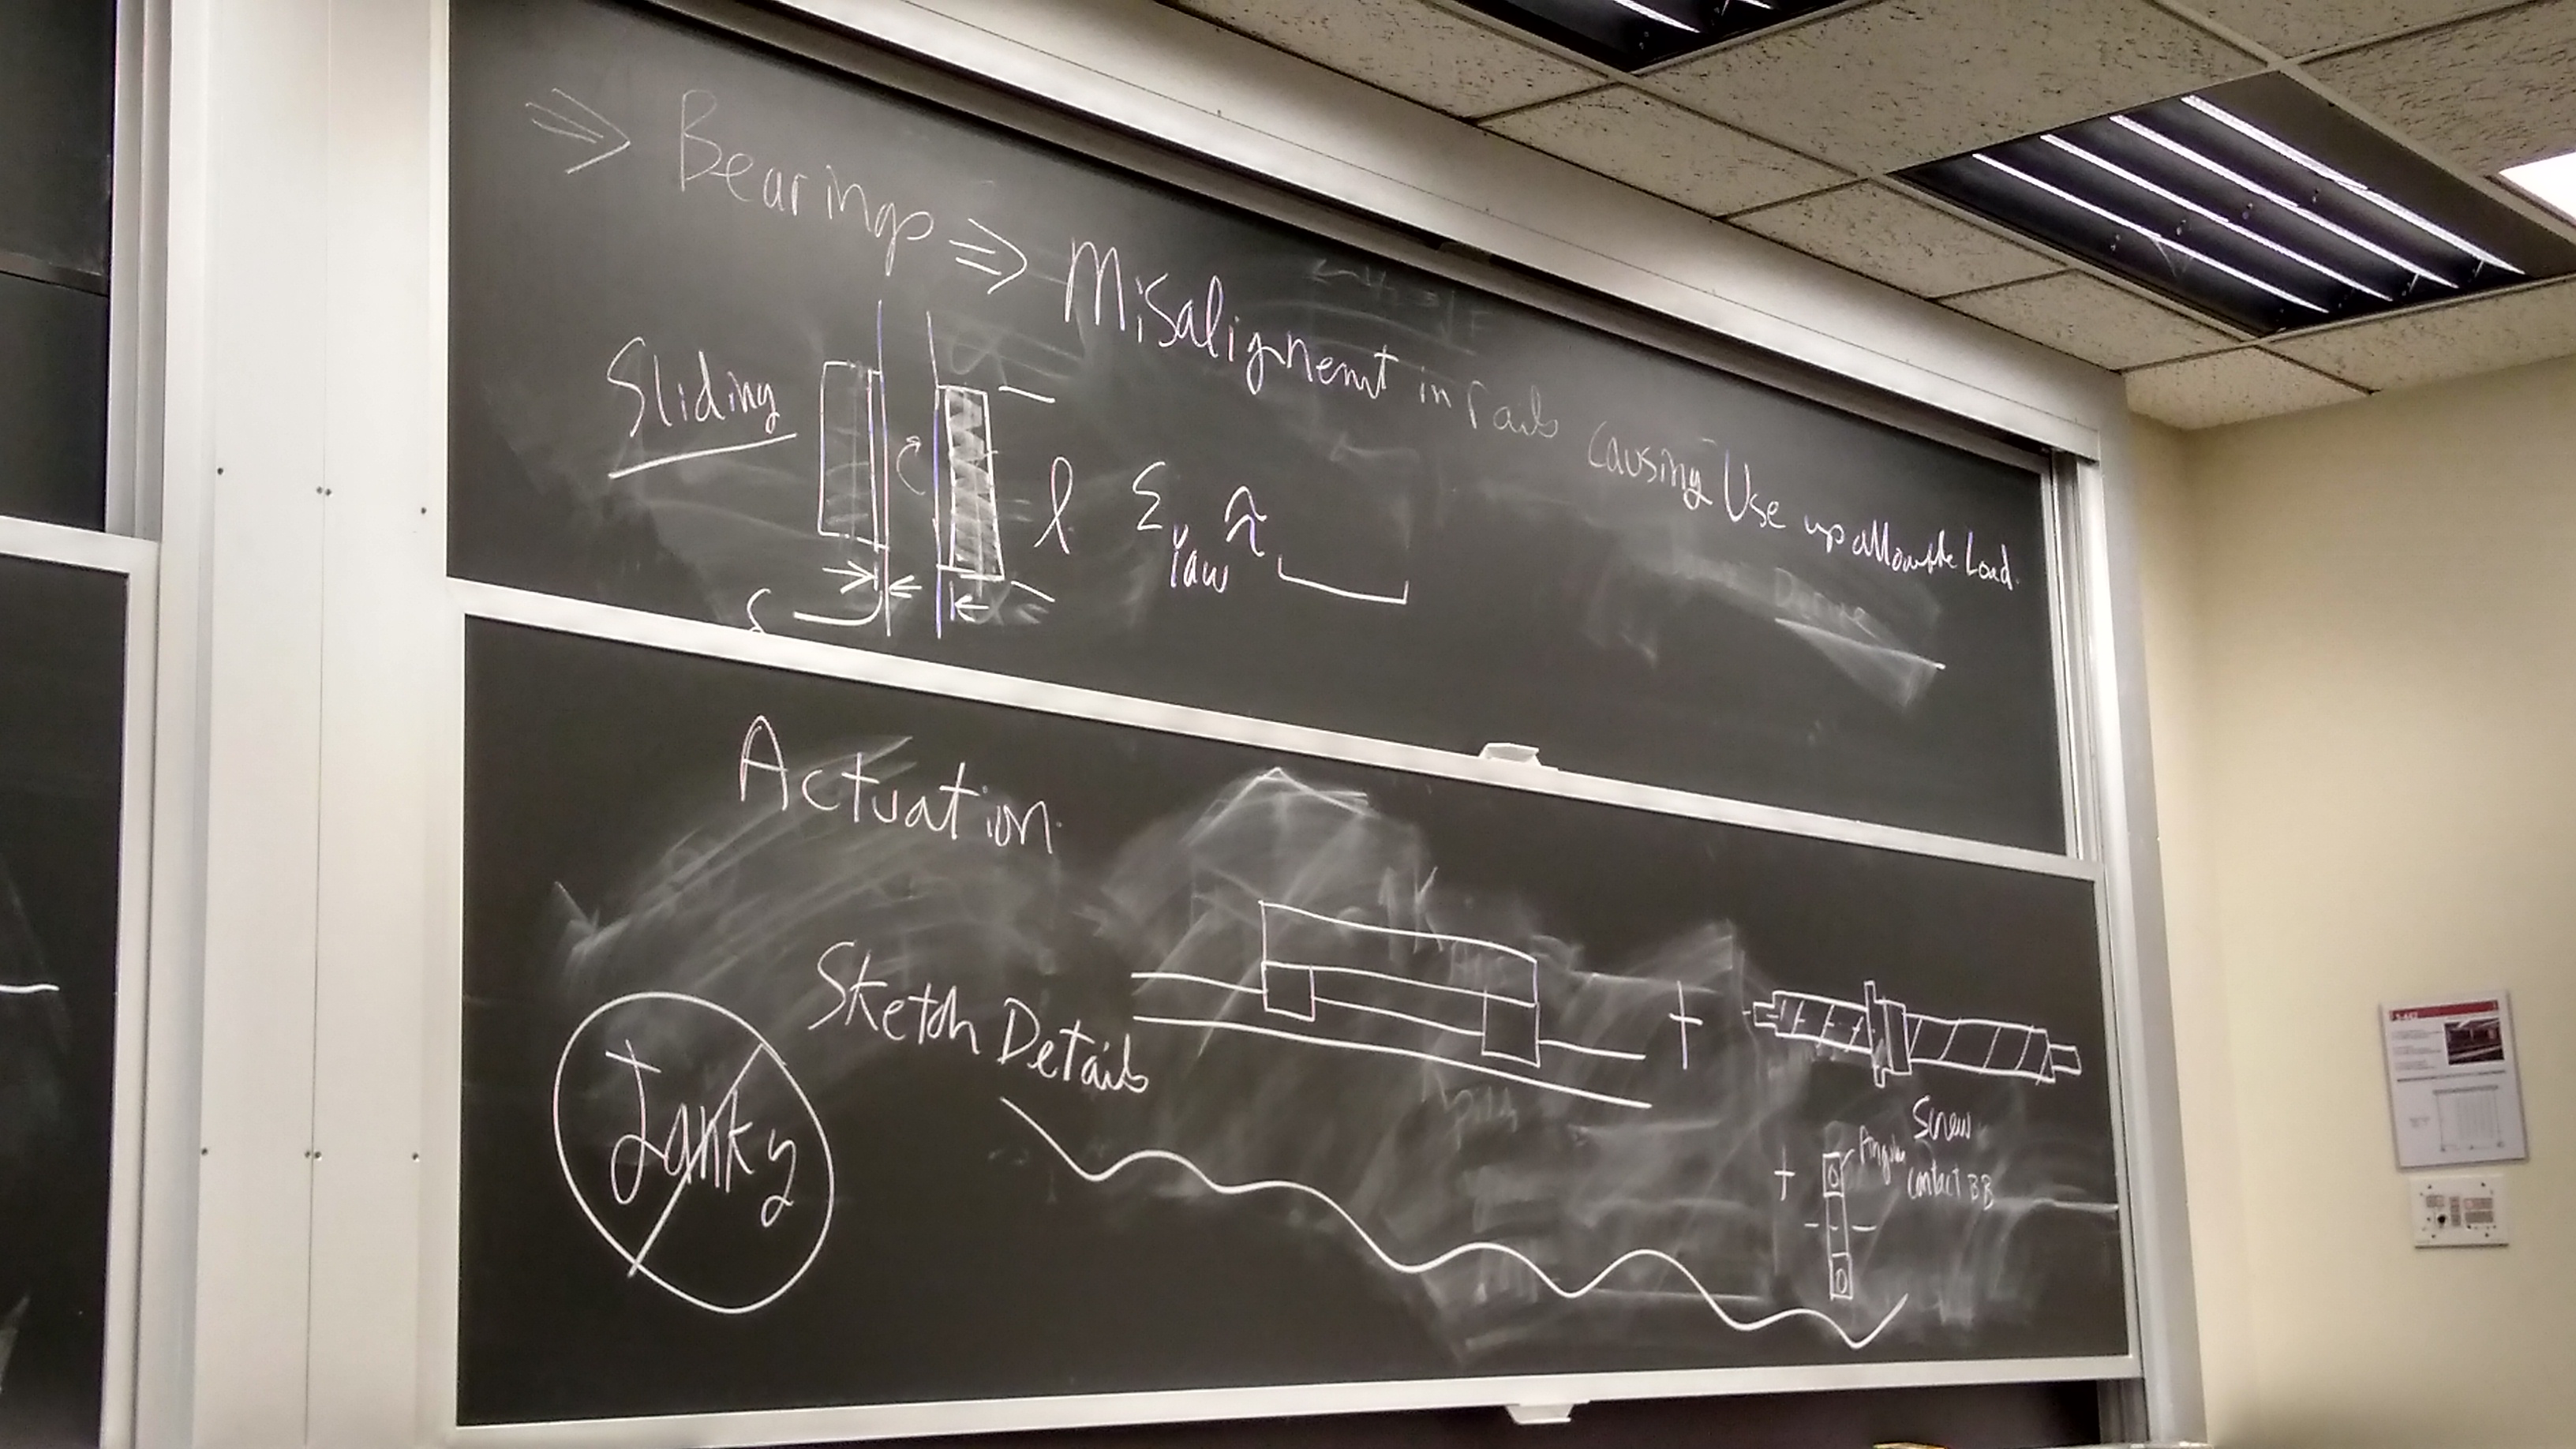 ⇒ Bearings ⇒ Misalignment in rails causing Use up allowable Load.
Sliding
l
ε yaw ≈
δ
Actuation
Sketch Details
Janky
+
Screw
+
Angular
contact BB